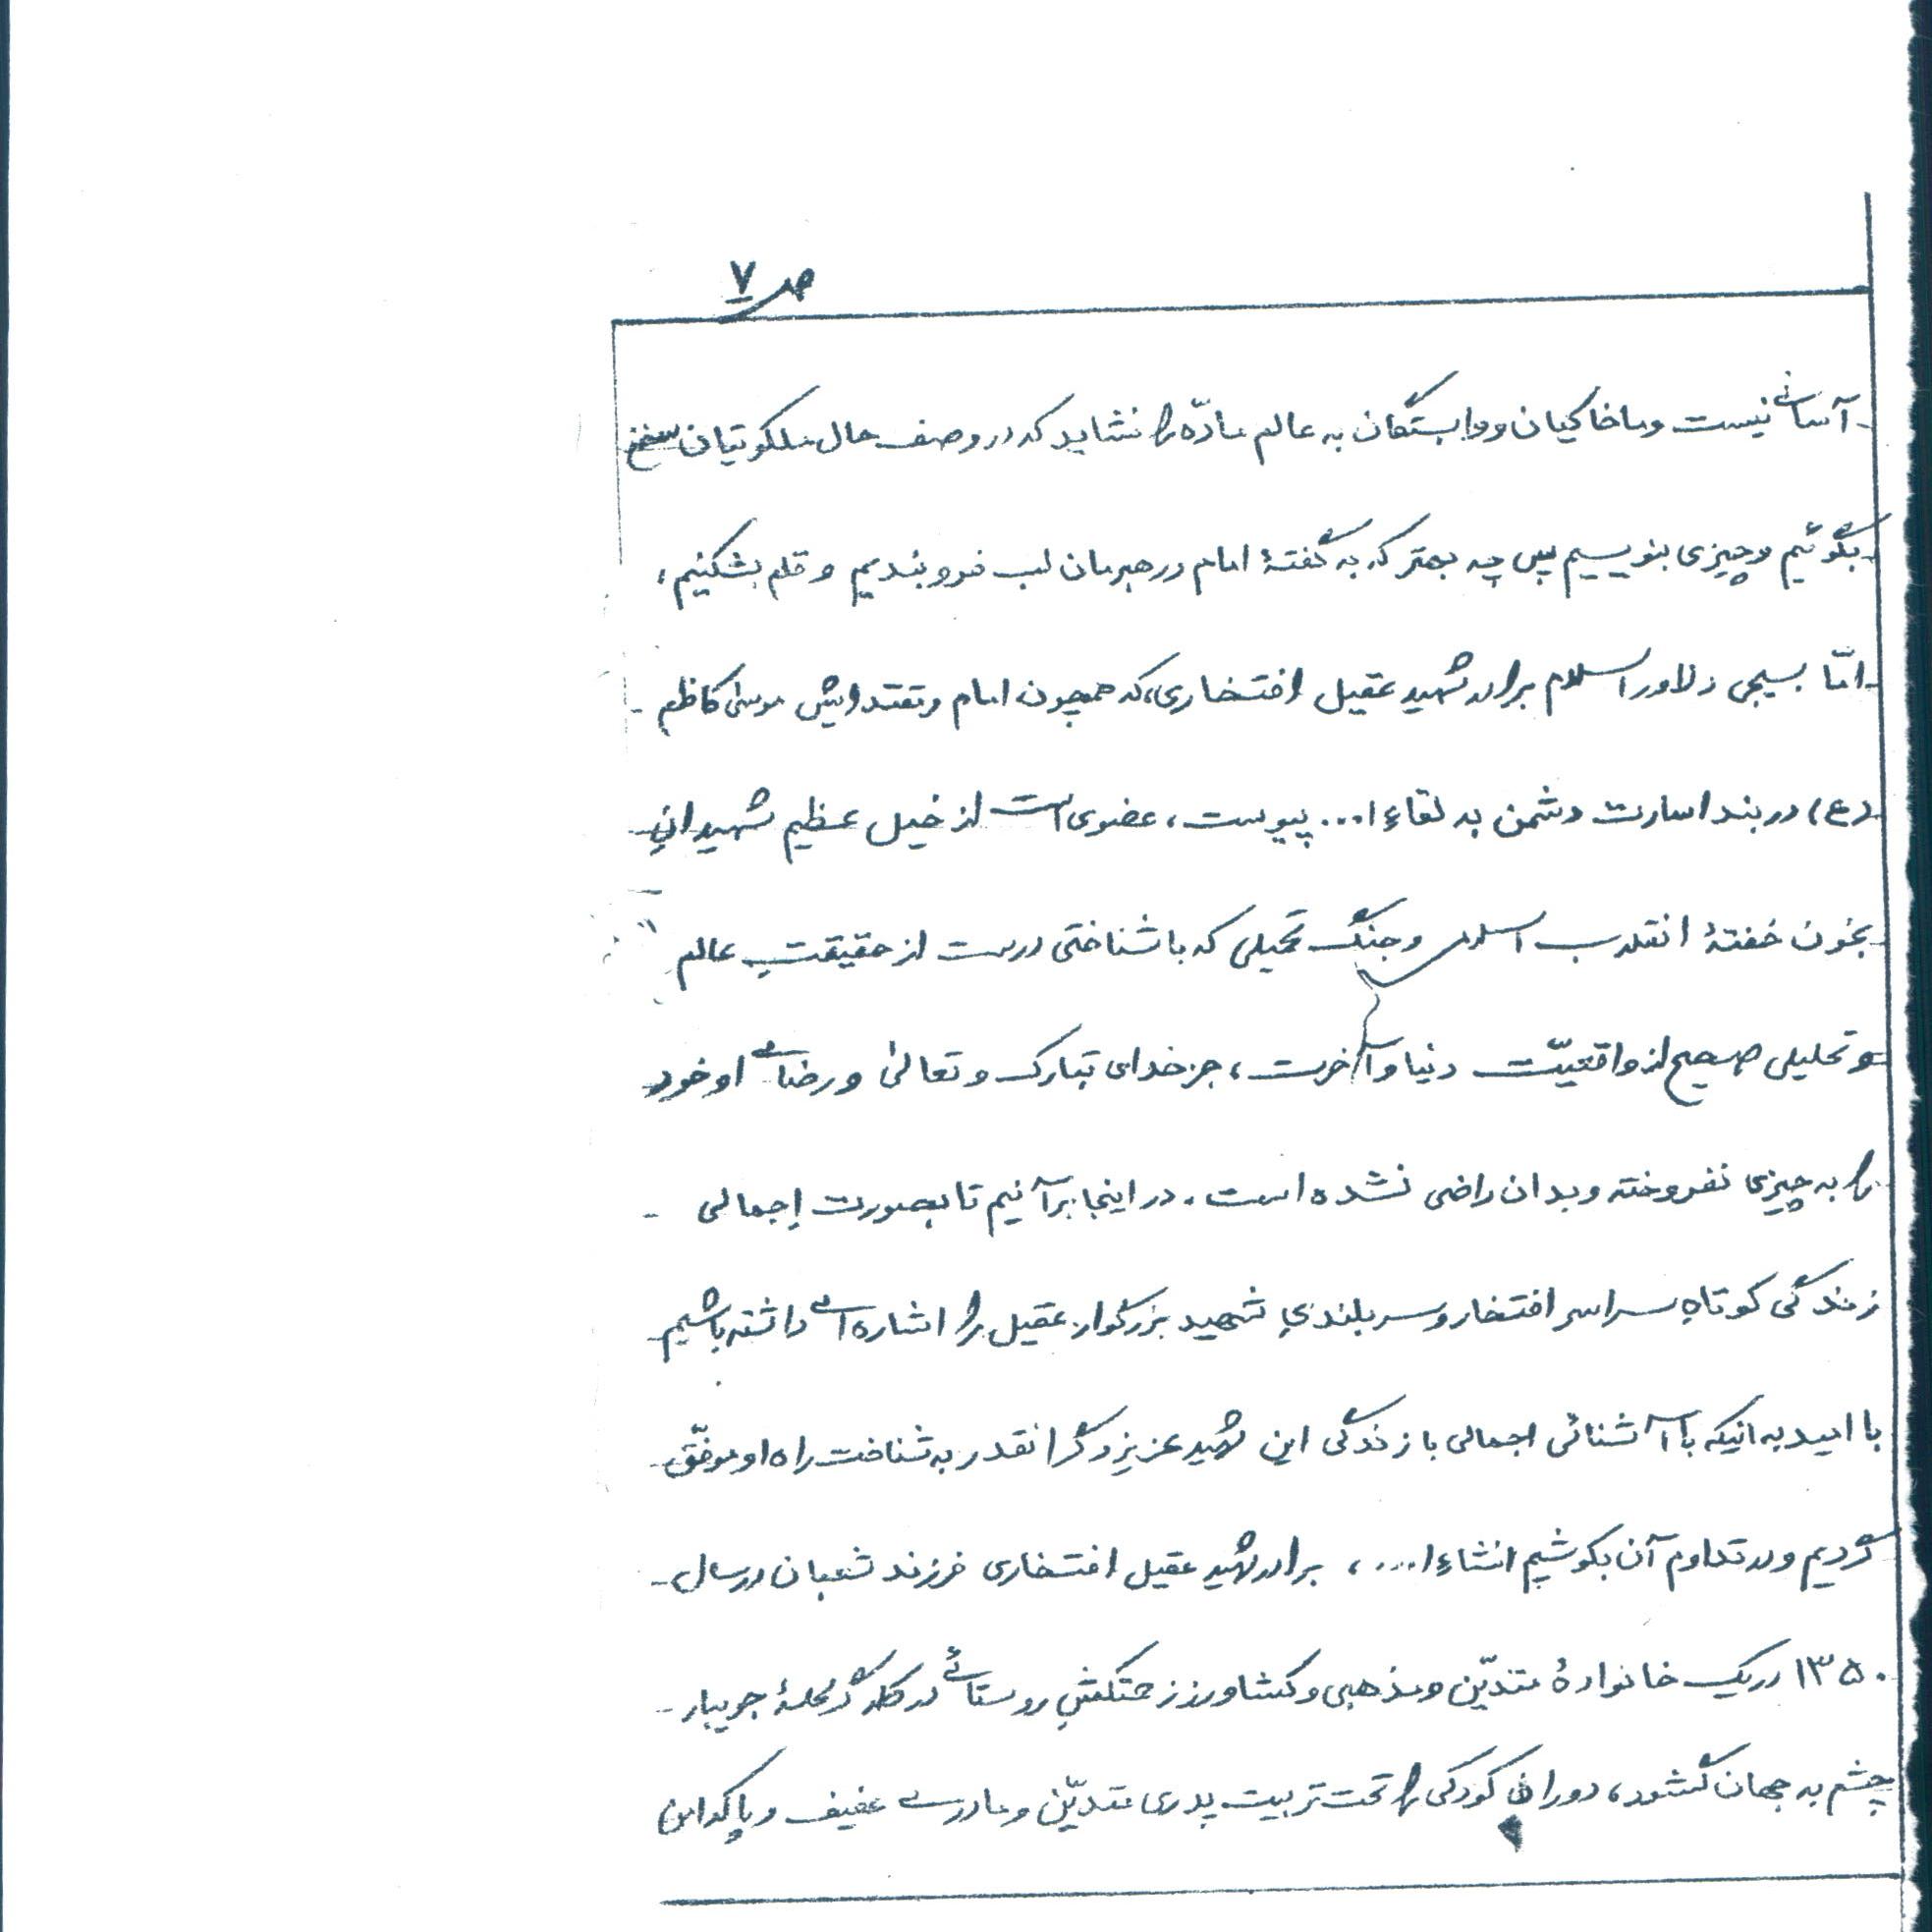 ص ۷
آسانی نیست و ما خاکیان و وابستگان به عالم مادّه را نشاید که در وصف حال ملکوتیان سخن
بگوئیم و چیزی بنویسیم پس چه بهتر که به گفتهٔ امام و رهبرمان لب فرو بندیم و قلم بشکنیم،
امّا بسیجی دلاور اسلام برادر شهید عقیل افتخاری، که همچون امام و مقتدایش موسیٰ کاظم -
(ع) در بند اسارت دشمن به لقاءِ ا... پیوست، عضوی است از خیل عظیم شهیدانِ
بخون خفتهٔ انقلاب اسلامی و جنگ تحمیلی که با شناختی درست از حقیقتِ عالم
و تحلیلی صحیح از واقعیّت دنیا و آخرت، جز خدای تبارک و تعالیٰ و رضای او خود
را به چیزی نفروخته و بدان راضی نشده است. در اینجا برآنیم تا بصورت اِجمالی -
زندگی کوتاهِ سراسر افتخار و سربلندیِ شهید بزرگوار عقیل را اشاره ای داشته باشیم
با امید به اینکه با آشنائی اجمالی با زندگی این شهید عزیز و گرانقدر به شناخت راه او موفّق -
گردیم و در تداوم آن بکوشیم انشاءِا...، برادر شهید عقیل افتخاری فرزند شعبان در سال -
۱۳۵۰ در یک خانوادهٔ متدیّن و مذهبی و کشاورز زحمتکشِ روستائی در کلاگر محلهٔ جویبار -
چشم به جهان گشود، دوران کودکی را تحت تربیت پدری متدیّن و مادری عفیف و پاکدامن